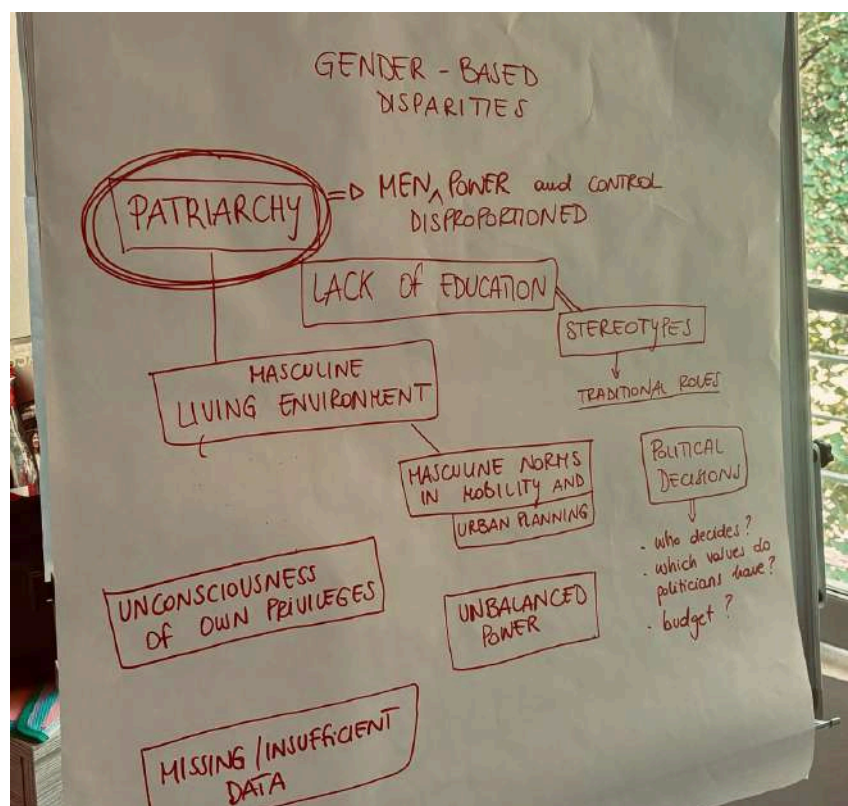 GENDER - BASED
DISPARITIES
PATRIARCHY
=> MEN ^ POWER and CONTROL
DISPROPORTIONED
LACK of EDUCATION
STEREOTYPES
TRADITIONAL ROLES
MASCULINE
LIVING ENVIRONMENT
MASCULINE NORMS
IN MOBILITY AND
URBAN PLANNING
POLITICAL
DECISIONS
. who decides?
. which values do
politicians have?
. budget?
UNCONSCIOUSNESS
Of OWN PRIVILEGES
UNBALANCED
POWER
MISSING/INSUFFICIENT
DATA